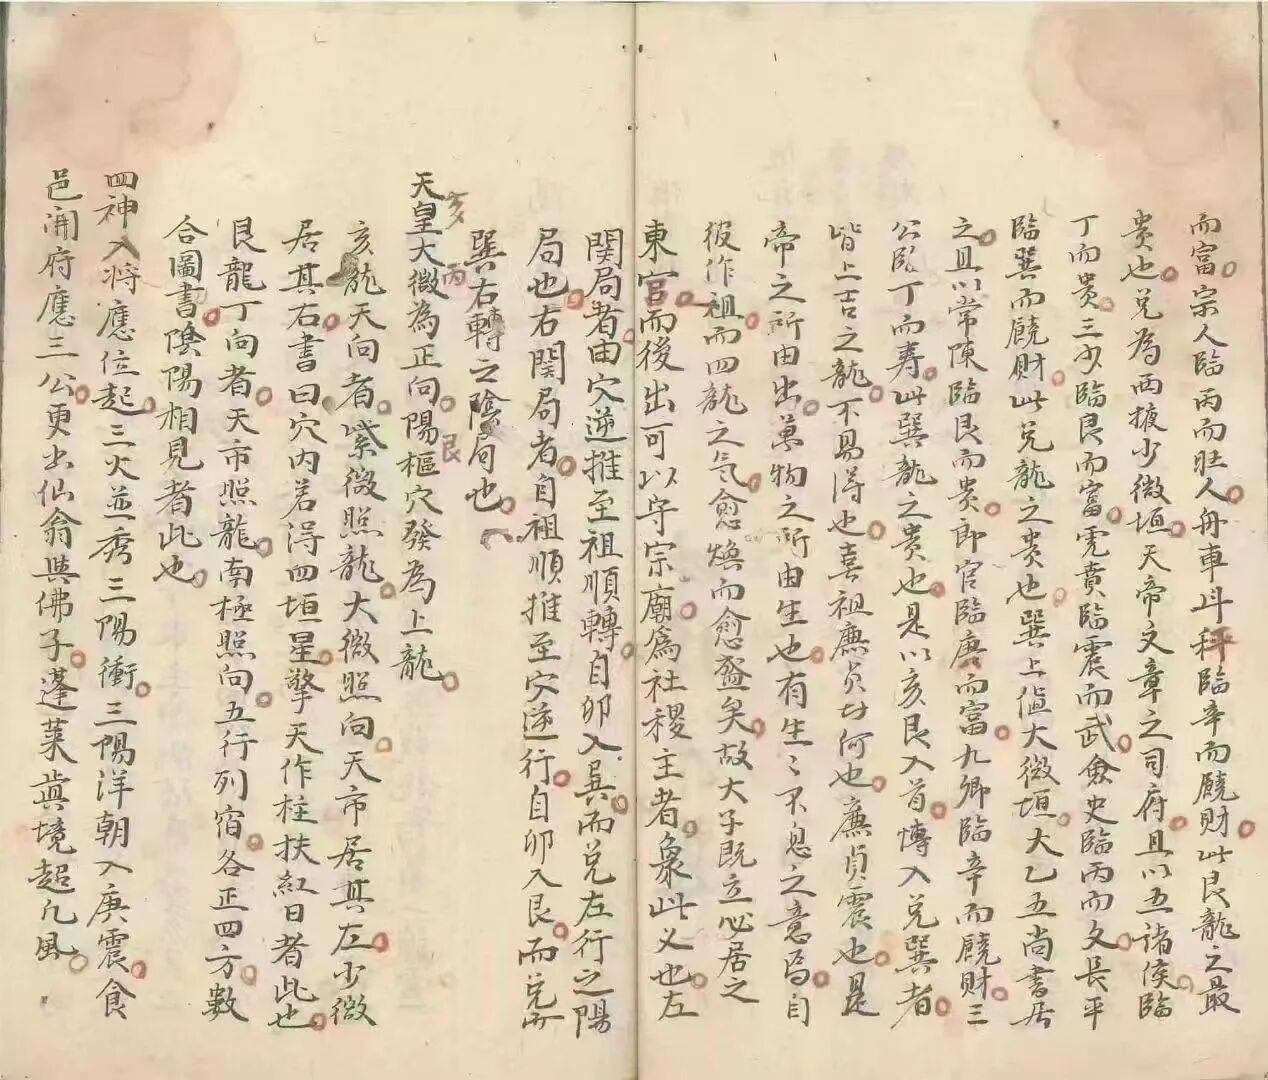 而富宗人臨丙而旺人舟車斗秤臨辛而饒財此艮龍之最
貴也兑為西掖少微垣天帝文章之司府且以五諸侯臨
丁而贵三少臨艮而富虎賁臨震而武僉史臨丙而文長平
臨巽而饒財此兑龍之贵也巽上值大微垣大乙五尚書居
之且以常陳臨艮而贵郎官臨庚而富九卿臨辛而饒財三
公臨丁而寿此巽龍之贵也是以亥艮入首愽入兑巽者
皆上吉之龍不易淂也喜祖廉贞者何也廉貞震也是
帝之所由出萬物之所由生也有生〻不息之意焉自
彼作祖而四龍之気愈煥而愈盛矣故大子既立必居之
東宫而後出可以守宗廟爲社稷主者象此义也左
関局者由穴逆推至祖順轉自卯入巽而兑左行之陽
局也右関局者自祖順推至穴逆行自卯入艮而兑
巽右轉之陰局也
天皇亥大微丙為正向陽樞艮穴發為上龍
亥龍天向者紫微照龍大微照向天市居其左少微
居其右書曰穴内若淂四垣星擎天作柱扶紅日者此也
艮龍丁向者天市照龍南極照向五行列宿各正四方數
合圖書陰陽相見者此也
四神入将應位起三火並秀三陽衝三陽洋朝入庚震食
邑開府應三公更出仙翁與佛子蓬萊真境超凡風